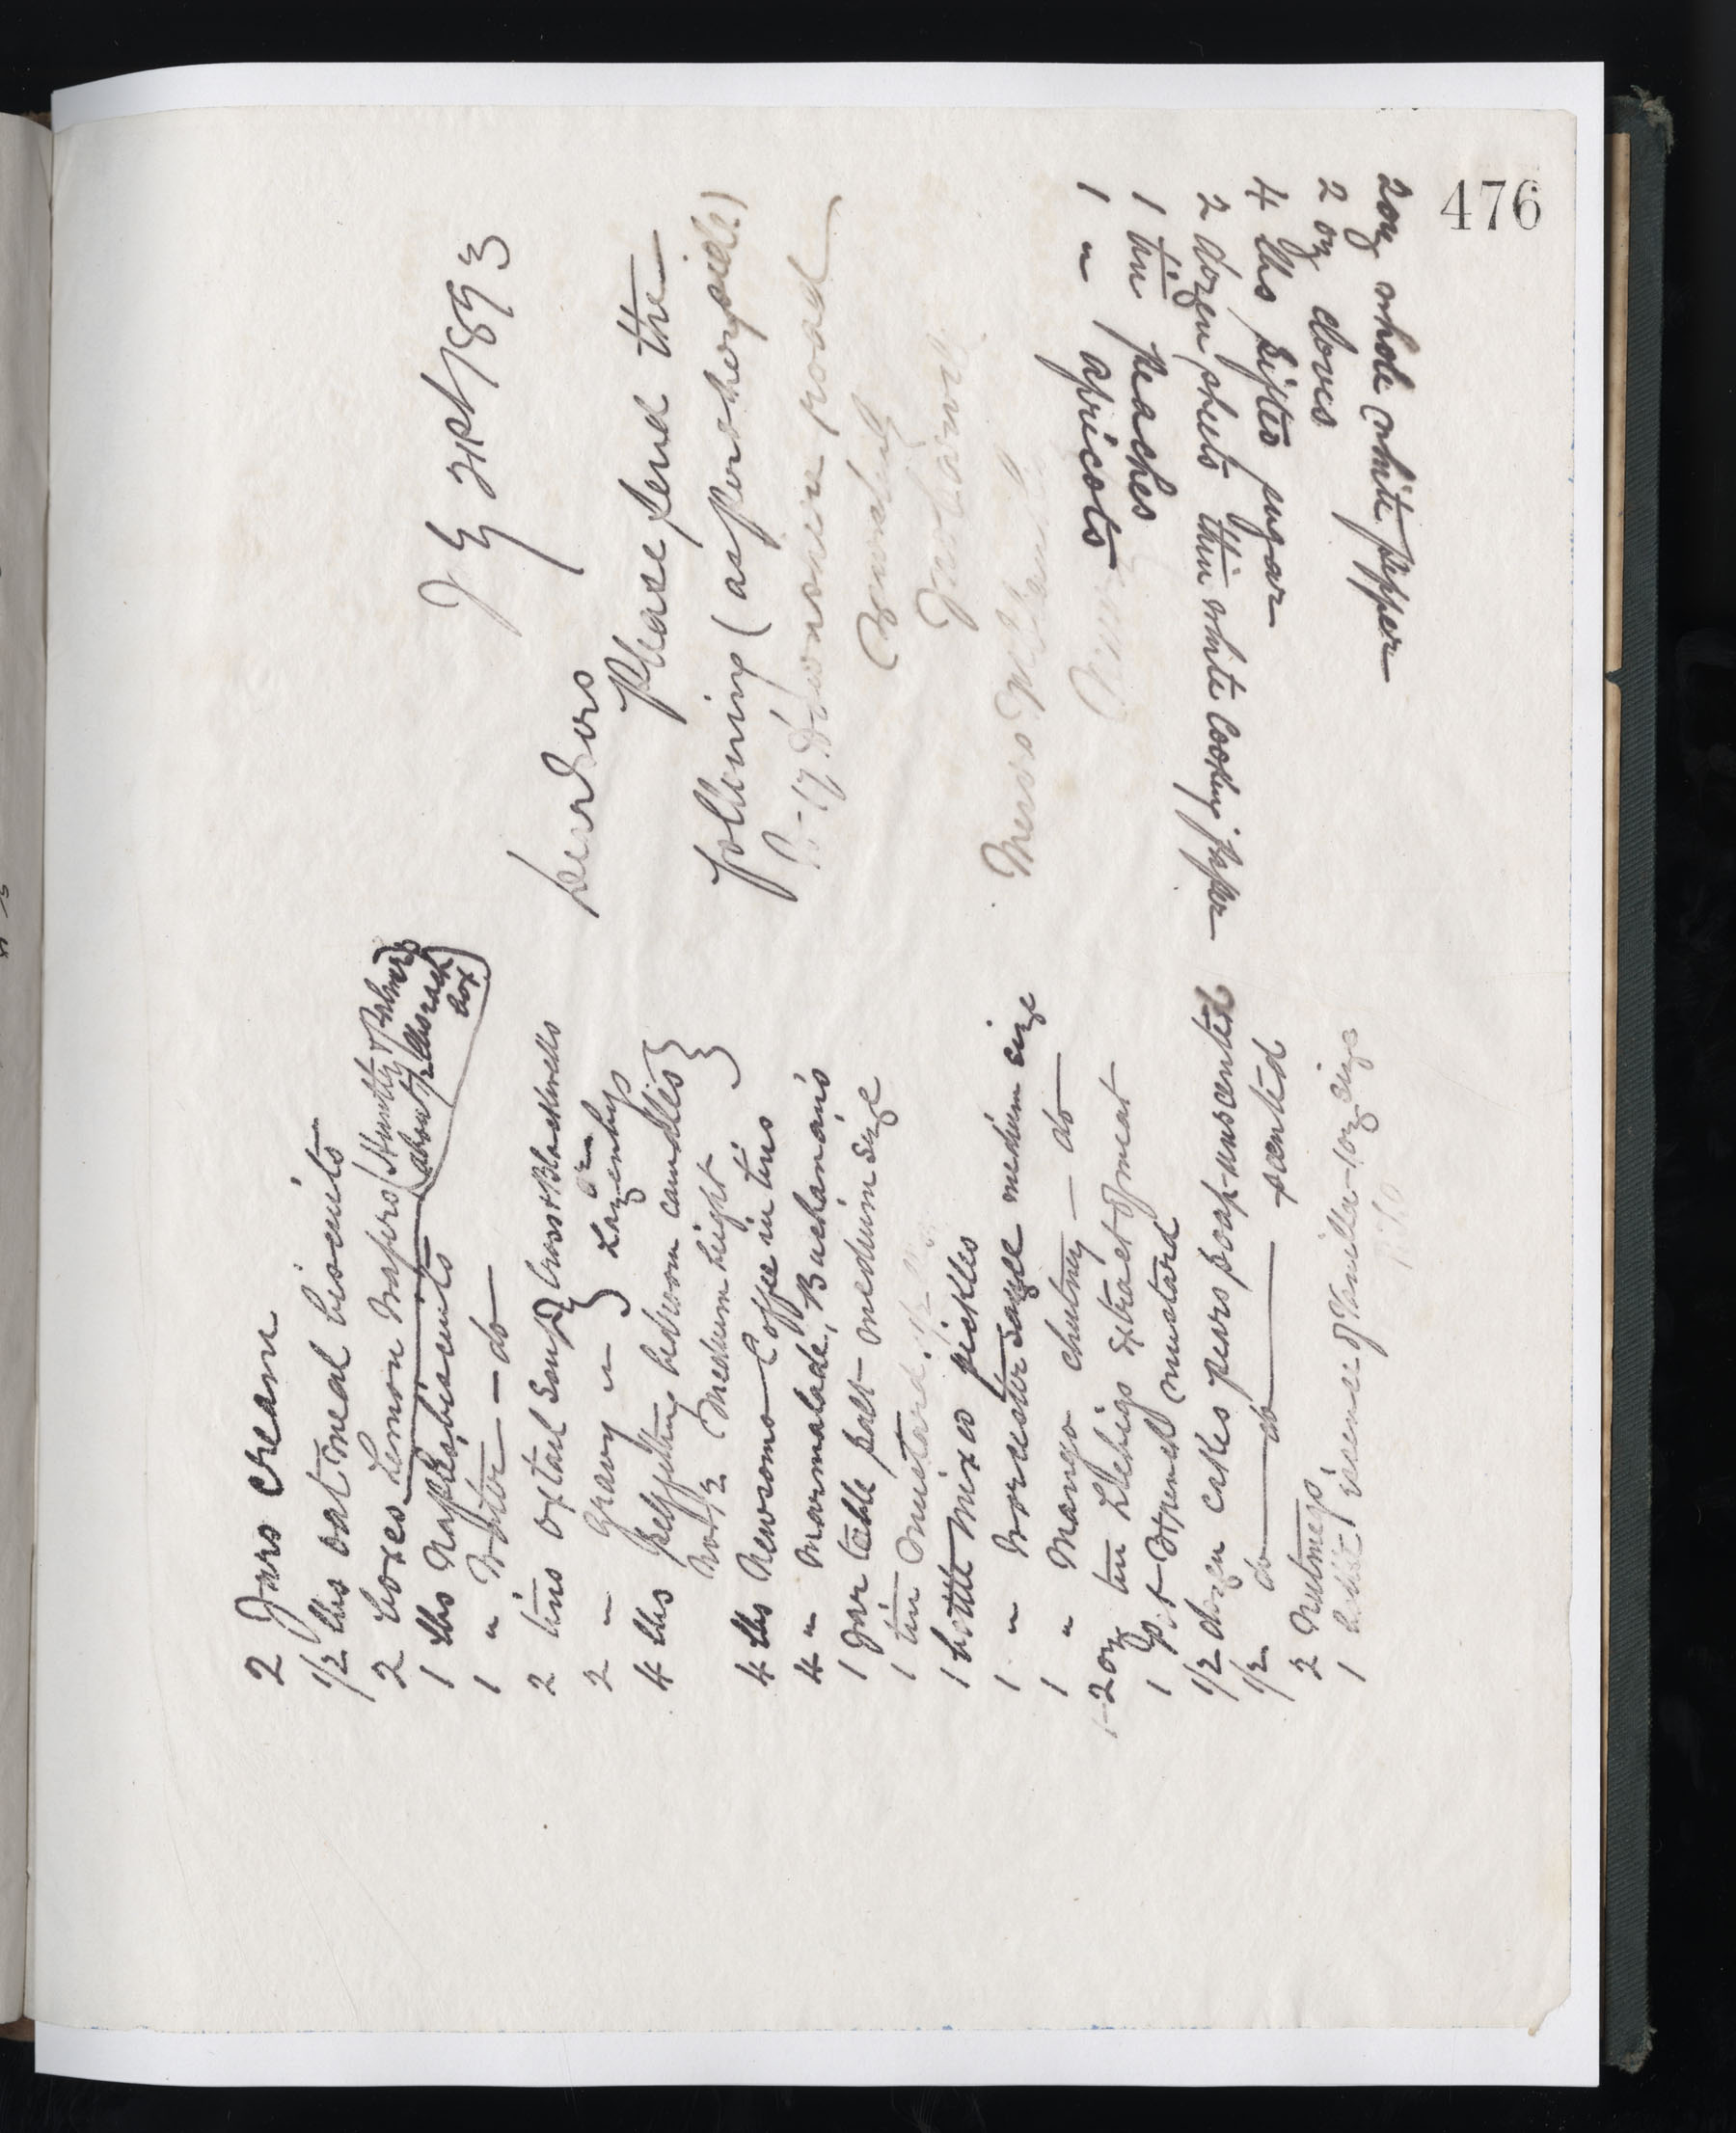 476
J G 21st/8 93
Dear Sirs
Please send the
following (as per otherside)
road
Bombay
Messrs
2 Jars cream
1/2 lbs oat meal biscuits
2 boxes Lemon Wafers (Huntly & Palmers
about 1/2 lbs each
box)
1 lbs Naples biscuits
1 " Water — do —
2 tins oxtail Soup } Cross & Blackwells
or
2 — Gravy " } Lazenbys
4 lbs selffitting bedroom candles }
No 1/2 Medium Light }
4 lbs Newsome Coffee in tins
4 " Marmalade, Buchanan's
1 Jar table salt — medium size
1 tin mustard 1/2 lb
1 bottle mixed pickles
1 " Worcester Sauce medium size
1 " Mango chutney — do —
1-2 oz tin Liebigs extract of meat
1 pot French mustard
1/2 dozen cakes pears soap - unscented
1/2 do — do — scented
2 Nutmegs
1 bottle essence of Vanilla - 1 oz size
P.T.O
2 oz whole white pepper
2 oz cloves
4 lbs sifted sugar
2 dozen sheets thin white Cooking paper
1 tin peaches
1 " apricots